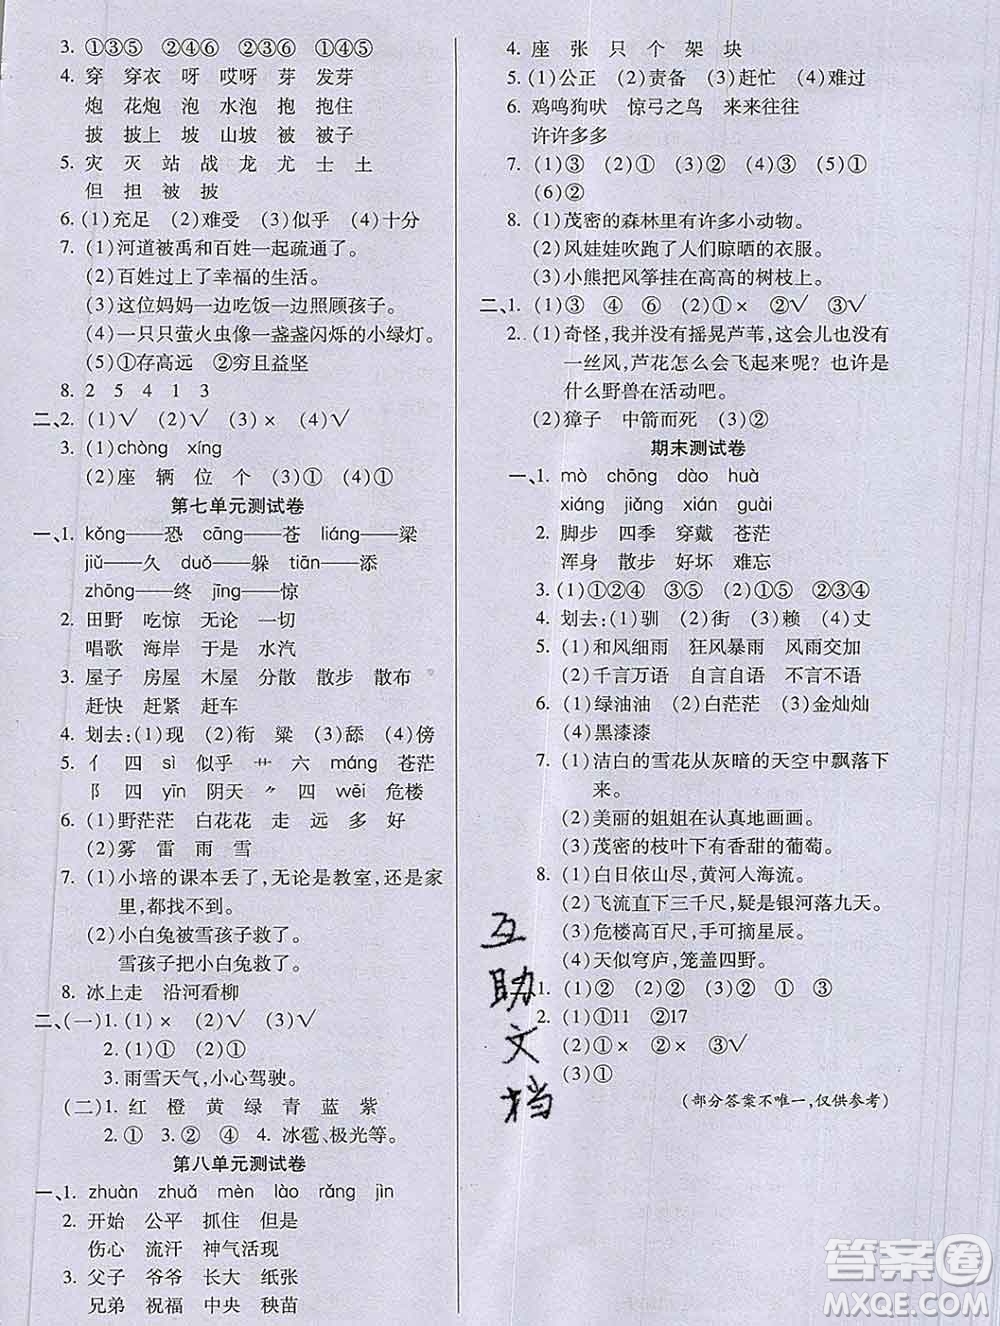 3. ①③⑤ ②④⑥ ②③⑥ ①④⑤
4. 穿 穿衣 呀 哎呀 芽 发芽
炮 花炮 泡 水泡 抱 抱住
披 披上 坡 山坡 被 被子
5. 灾 灭 站 战 龙 尤 士 土
但 担 被 披
6. (1)充足 (2)难受 (3)似乎 (4)十分
7. (1)河道被禹和百姓一起疏通了。
(2)百姓过上了幸福的生活。
(3)这位妈妈一边吃饭一边照顾孩子。
(4)一只只萤火虫像一盏盏闪烁的小绿灯。
(5)①存高远 ②穷且益坚
8. 2 5 4 1 3
二、2. (1)√ (2)√ (3)× (4)√
3. (1)chòng xíng
(2)座 辆 位 个 (3)① (4)①
第七单元测试卷
一、1. kǒng——恐 cāng——苍 liáng——梁
jiǔ——久 duǒ——躲 tiān——添
zhōng——终 jīng——惊
2. 田野 吃惊 无论 一切
唱歌 海岸 于是 水汽
3. 屋子 房屋 木屋 分散 散步 散布
赶快 赶紧 赶车
4. 划去:(1)现 (2)衔 粱 (3)舔 (4)傍
5. 亻 四 sì 似乎 艹 六 máng 苍茫
阝 四 yīn 阴天 ⺈ 四 wēi 危楼
6. (1)野茫茫 白花花 走 远 多 好
(2)雾 雷 雨 雪
7. (1)小培的课本丢了,无论是教室,还是家
里,都找不到。
(2)小白兔被雪孩子救了。
雪孩子把小白兔救了。
8. 冰上走 沿河看柳
二、(一)1. (1)× (2)√ (3)√
2. (1)① (2)①
3. 雨雪天气,小心驾驶。
(二)1. 红 橙 黄 绿 青 蓝 紫
2. ① 3. ② ④ 4. 冰雹、极光等。
第八单元测试卷
一、1. zhuàn zhuǎ mèn lào rǎng jìn
2. 开始 公平 抓住 但是
伤心 流汗 神气活现
3. 父子 爷爷 长大 纸张
兄弟 祝福 中央 秧苗
4. 座 张 只 个 架 块
5. (1)公正 (2)责备 (3)赶忙 (4)难过
6. 鸡鸣狗吠 惊弓之鸟 来来往往
许许多多
7. (1)③ (2)① (3)② (4)① (5)①
(6)②
8. (1)茂密的森林里有许多小动物。
(2)风娃娃吹跑了人们晾晒的衣服。
(3)小熊把风筝挂在高高的树枝上。
二、1. (1)③ ④ ⑥ (2)①× ②√ ③√
2. (1)奇怪,我并没有摇晃芦苇,这会儿也没有
一丝风,芦花怎么会飞起来呢?也许是
什么野兽在活动吧。
(2)獐子 中箭而死 (3)②
期末测试卷
一、1. mò chōng dào huà
xiáng jiǎng xián guài
2. 脚步 四季 穿戴 苍茫
浑身 散步 好坏 难忘
3. (1)①②④ (2)①③④ (3)②③④
4. 划去:(1)驯 (2)街 (3)赖 (4)丈
5. (1)和风细雨 狂风暴雨 风雨交加
(2)千言万语 自言自语 不言不语
6. (1)绿油油 (2)白茫茫 (3)金灿灿
(4)黑漆漆
7. (1)洁白的雪花从灰暗的天空中飘落下
来。
(2)美丽的姐姐在认真地画画。
(3)茂密的枝叶下有香甜的葡萄。
8. (1)白日依山尽,黄河入海流。
(2)飞流直下三千尺,疑是银河落九天。
(3)危楼高百尺,手可摘星辰。
(4)天似穹庐,笼盖四野。
二、1. (1)② (2)③ (3)② ① ③
2. (1)①11 ②17
(2)①× ②× ③√
(3)①
(部分答案不唯一,仅供参考)
互
助
文
档
答案圈
MXQE.COM